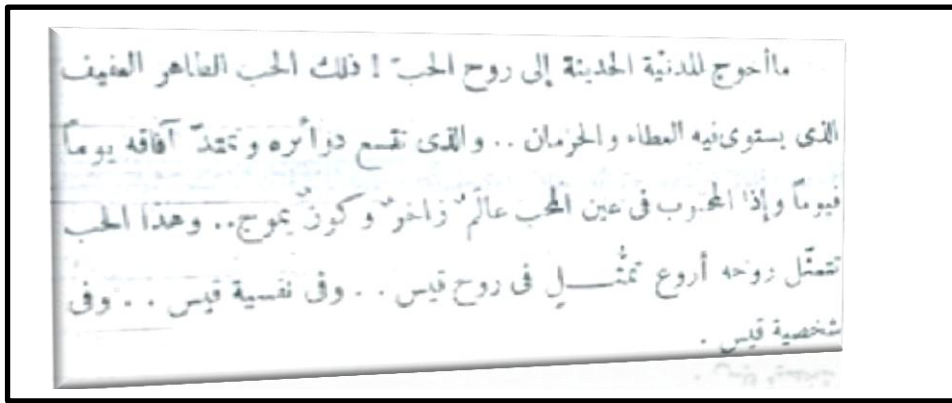 ماأحوج المدنيّة الحديثة إلى روح الحبّ ! ذلك الحب الطاهر العفيف
الذى يستوى فيه العطاء والحرمان .. والذى تتسع دوائره وتمتدّ آفاقه يوماً
فيوماً وإذا المحبوب فى عين المحب عالمٌ زاخرٌ وكونٌ يموج.. وهذا الحب
تتمثّل روحه أروع تمثُّـــل فى روح قيس . . وفى نفسية قيس . . وفى
شخصية قيس .